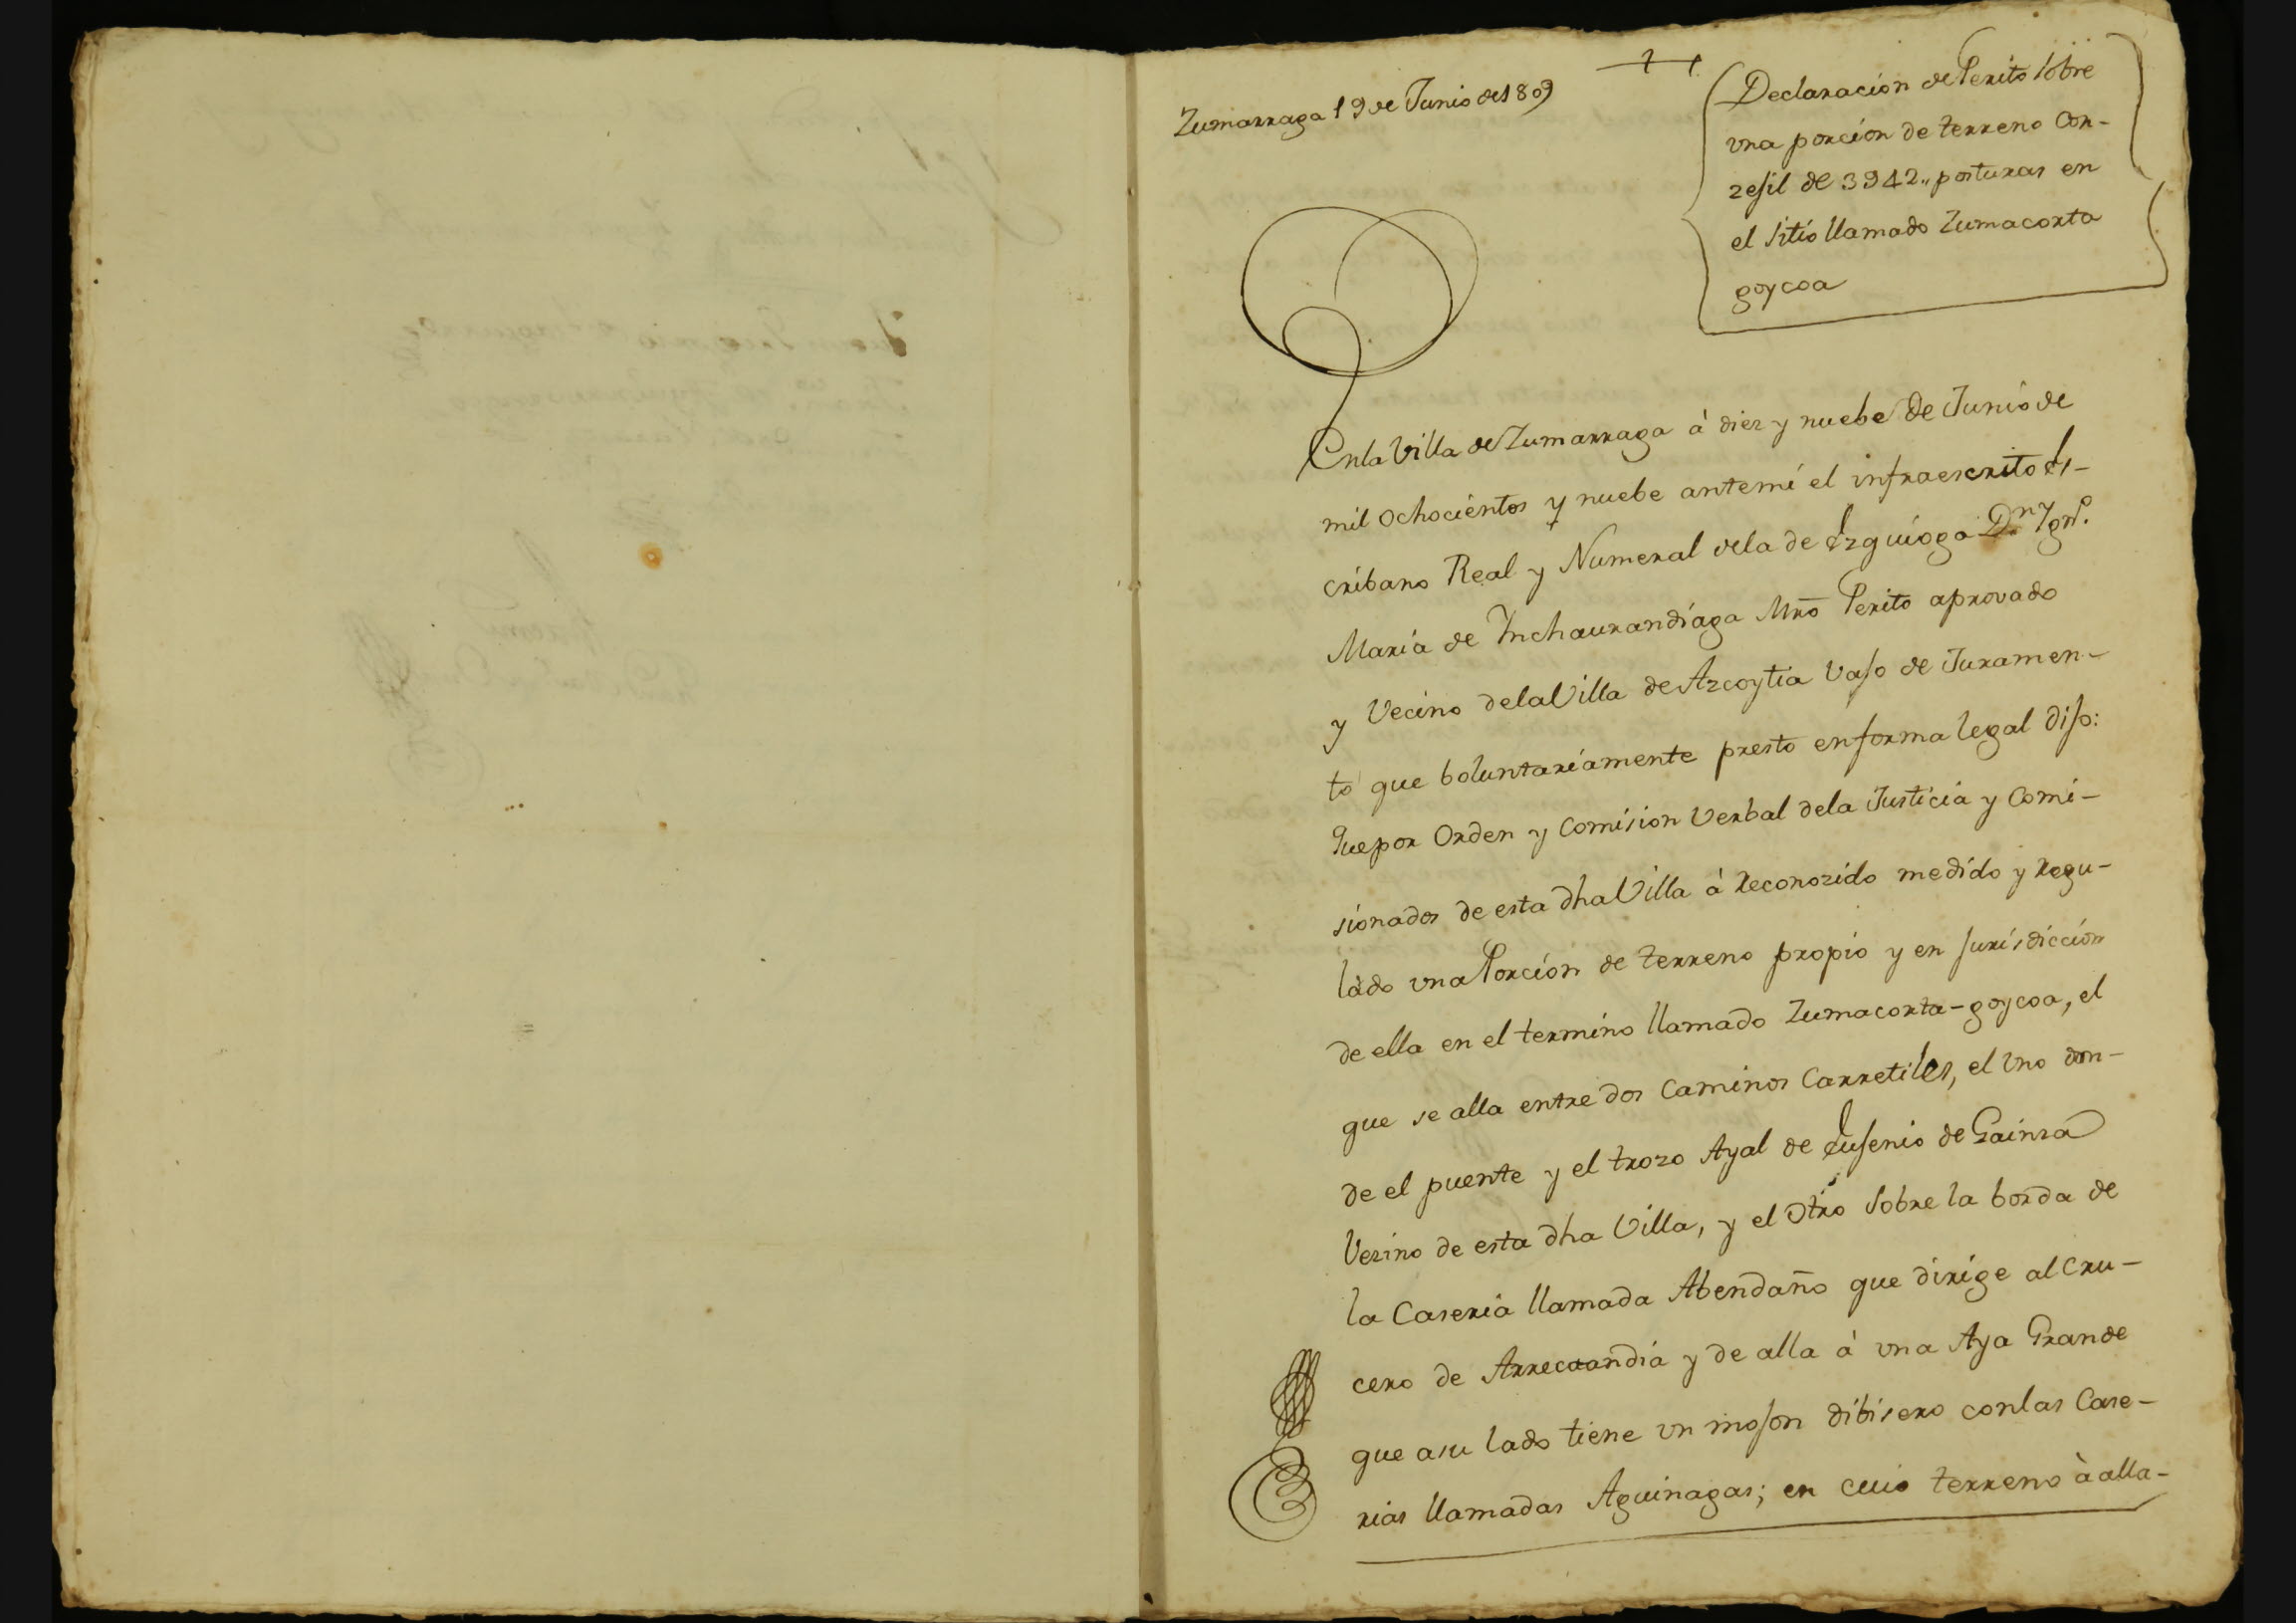 Zumarraga 19 de Junio de 1809
Declaración de Perito sobre
una porción de terreno Con-
zejil de 3942,, posturas en
el sitio llamado Zumacorta
goycoa
En la Villa de Zumarraga à diez y nuebe de Junio de
mil ochocientos y nuebe antemi el infraescrito Es-
cribano Real y Numeral de la de Ezquioga Dn. Ign.º
Maria de Ynchaurandiaga Mro Perito aprovado
y Vecino de la Villa de Azcoytia vajo de Juramen-
to que boluntariamente presto en forma legal dijo:
Que por Orden y Comision Verbal de la Justicia y Comi-
sionados de esta dha Villa à Reconozido medido y Regu-
lado una Porción de terreno propio y en jurisdicción
de ella en el termino llamado Zumacorta-goycoa, el
que se alla entre dos Caminos Carretiles, el uno don-
de el puente y el trozo Ayal de Eusenio de Gainza
Vezino de esta dha Villa, y el Otro sobre la borda de
la Caseria llamada Abendaño que dirige al Cru-
cero de y de alla à una Aya Grande
que a su lado tiene un mojon dibisero con las Case-
rias llamadas Aguinagas; en cuio terreno à alla-